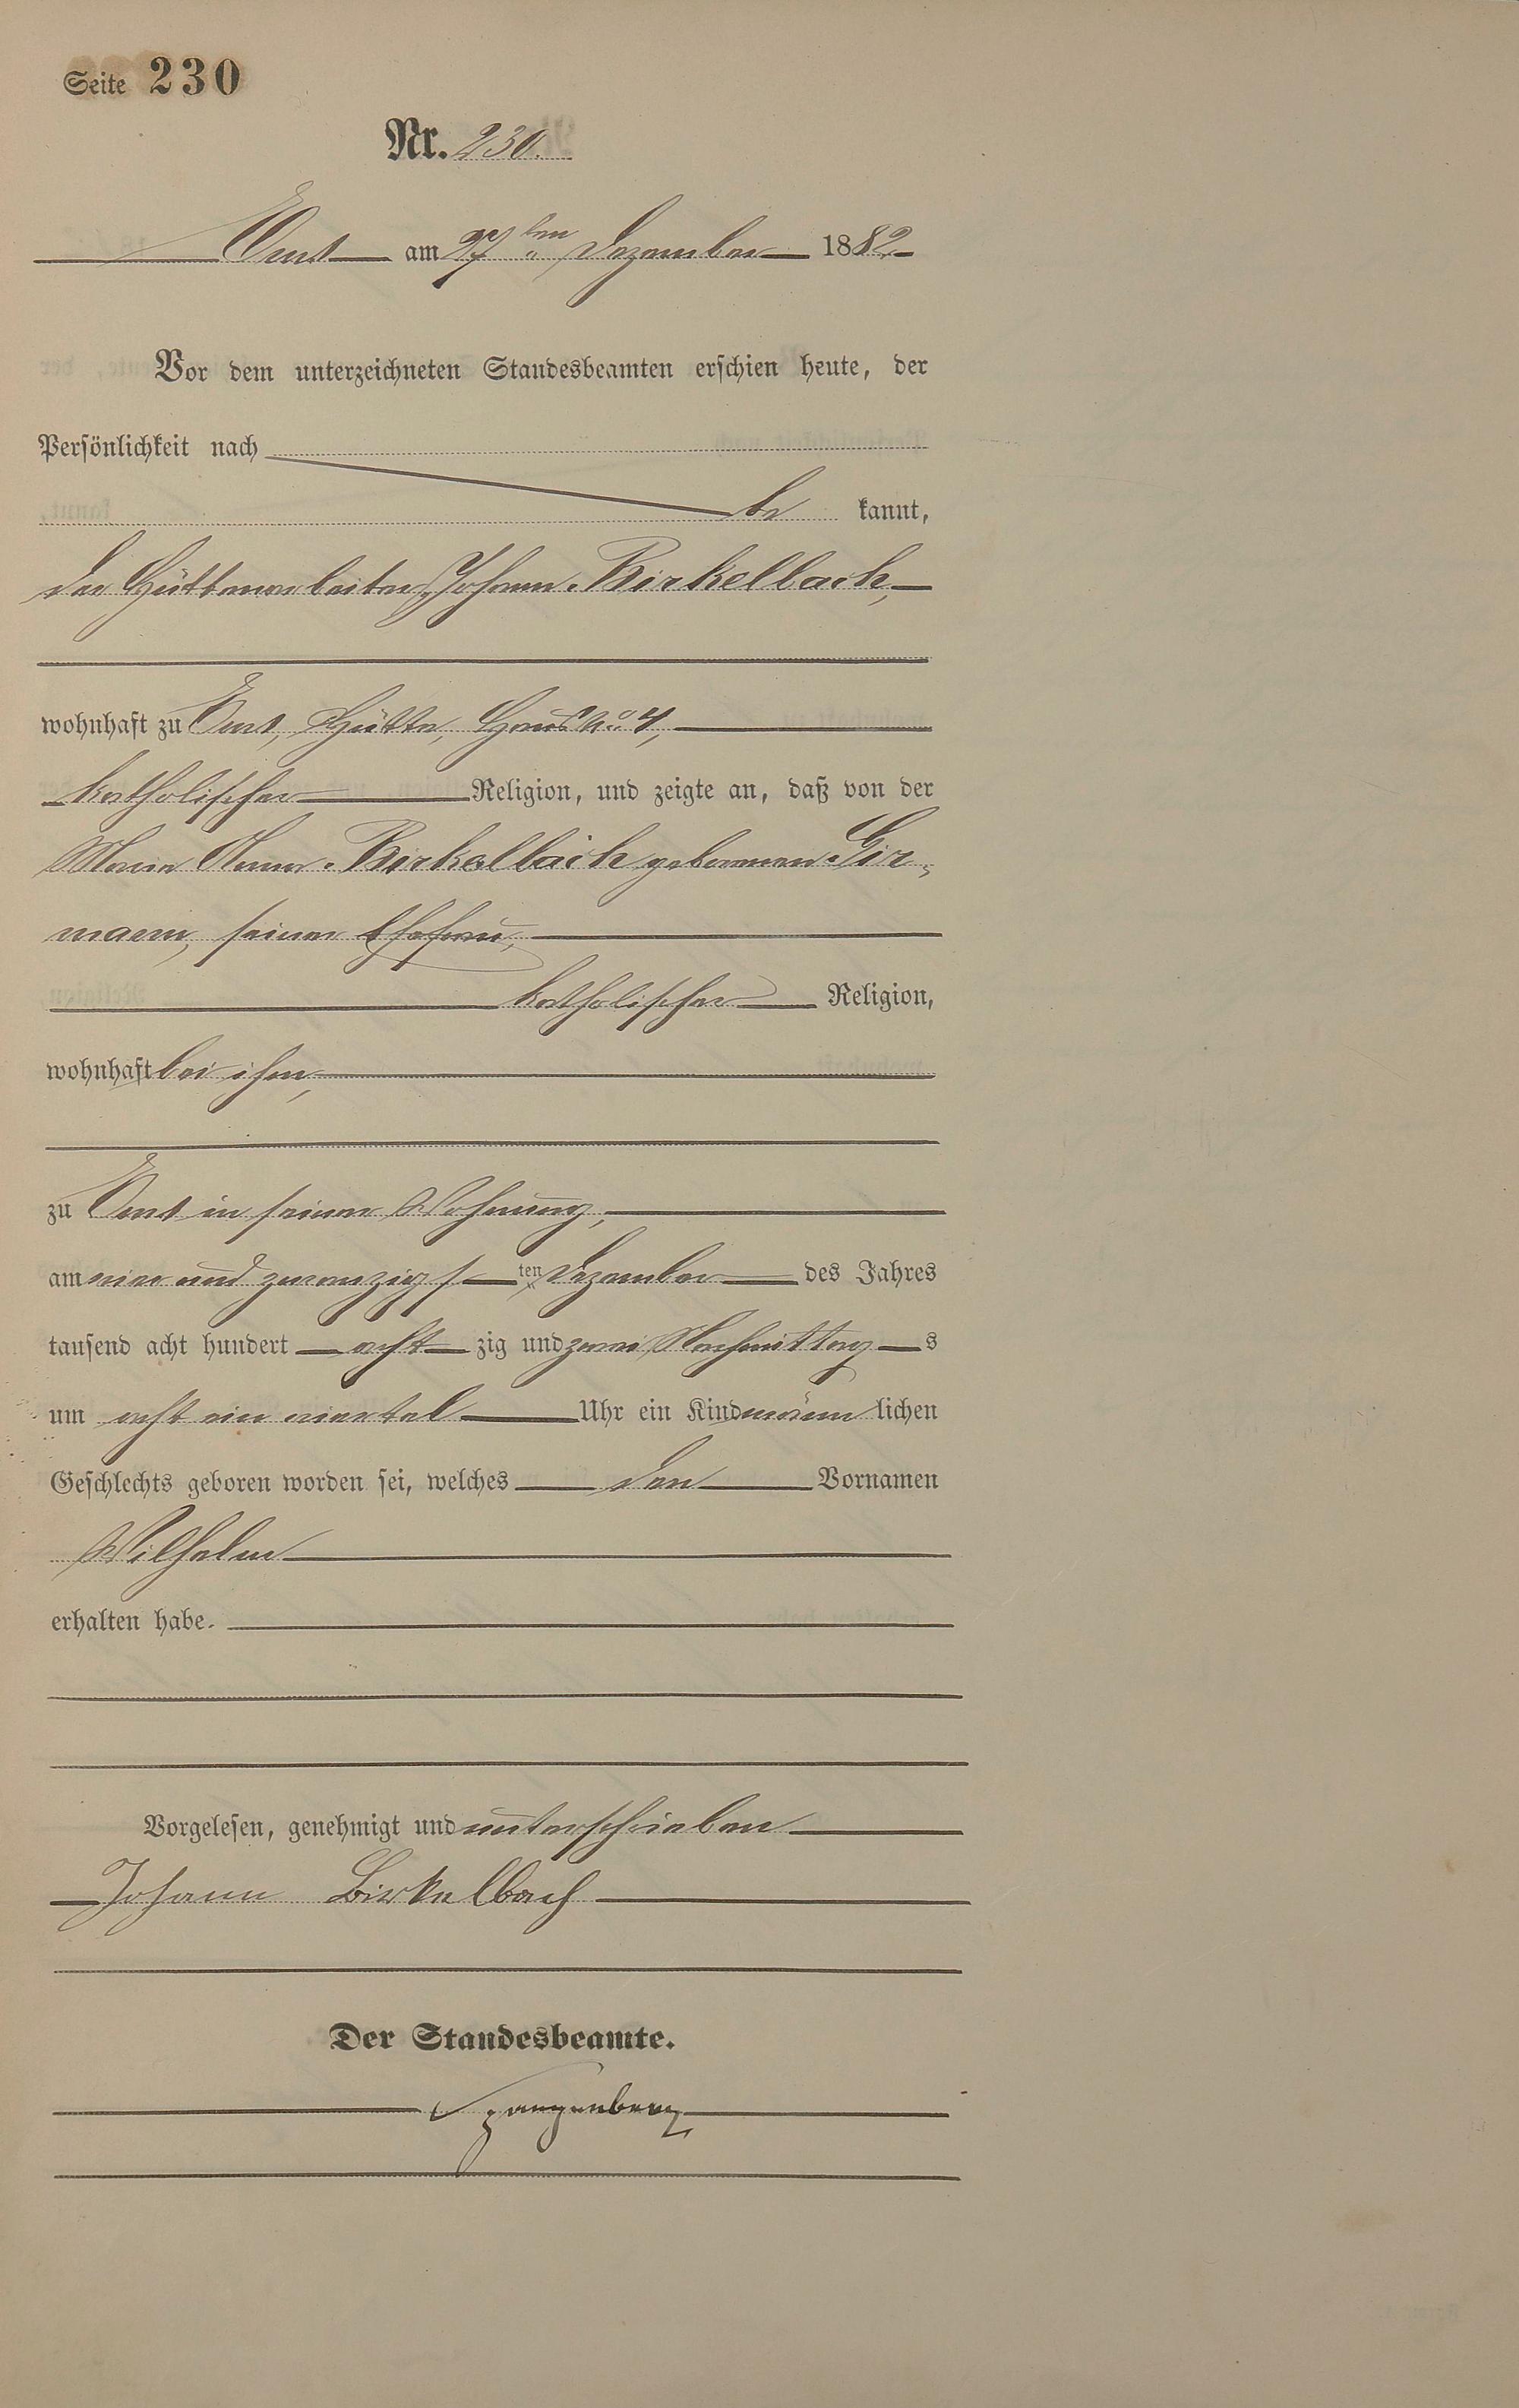 Seite 230
Nr. 230.
Ems am 27ten Dezember 1882
Vor dem unterzeichneten Standesbeamten erschien heute, der
Persönlichkeit nach
be kannt,
der Hüttenarbeiter Johann Birkelbach,
wohnhaft zu Ems, Hütte, Haus No 4,
katholischer Religion, und zeigte an, daß von der
Maria Anna Birkelbach geborenen Gir-
mann, seiner Ehefrau,
katholischer Religion,
wohnhaft bei ihm,
zu Ems in seiner Wohnung,
am vier und zwanzigs ten Dezember des Jahres
tausend acht hundert acht zig und zwei Nachmittag s
um acht ein viertel Uhr ein Kind männ lichen
Geschlechts geboren worden sei, welches den Vornamen
Wilhelm
erhalten habe.
Vorgelesen, genehmigt und unterschrieben
Johann Birkelbach
Der Standesbeamte.
Spangenberg